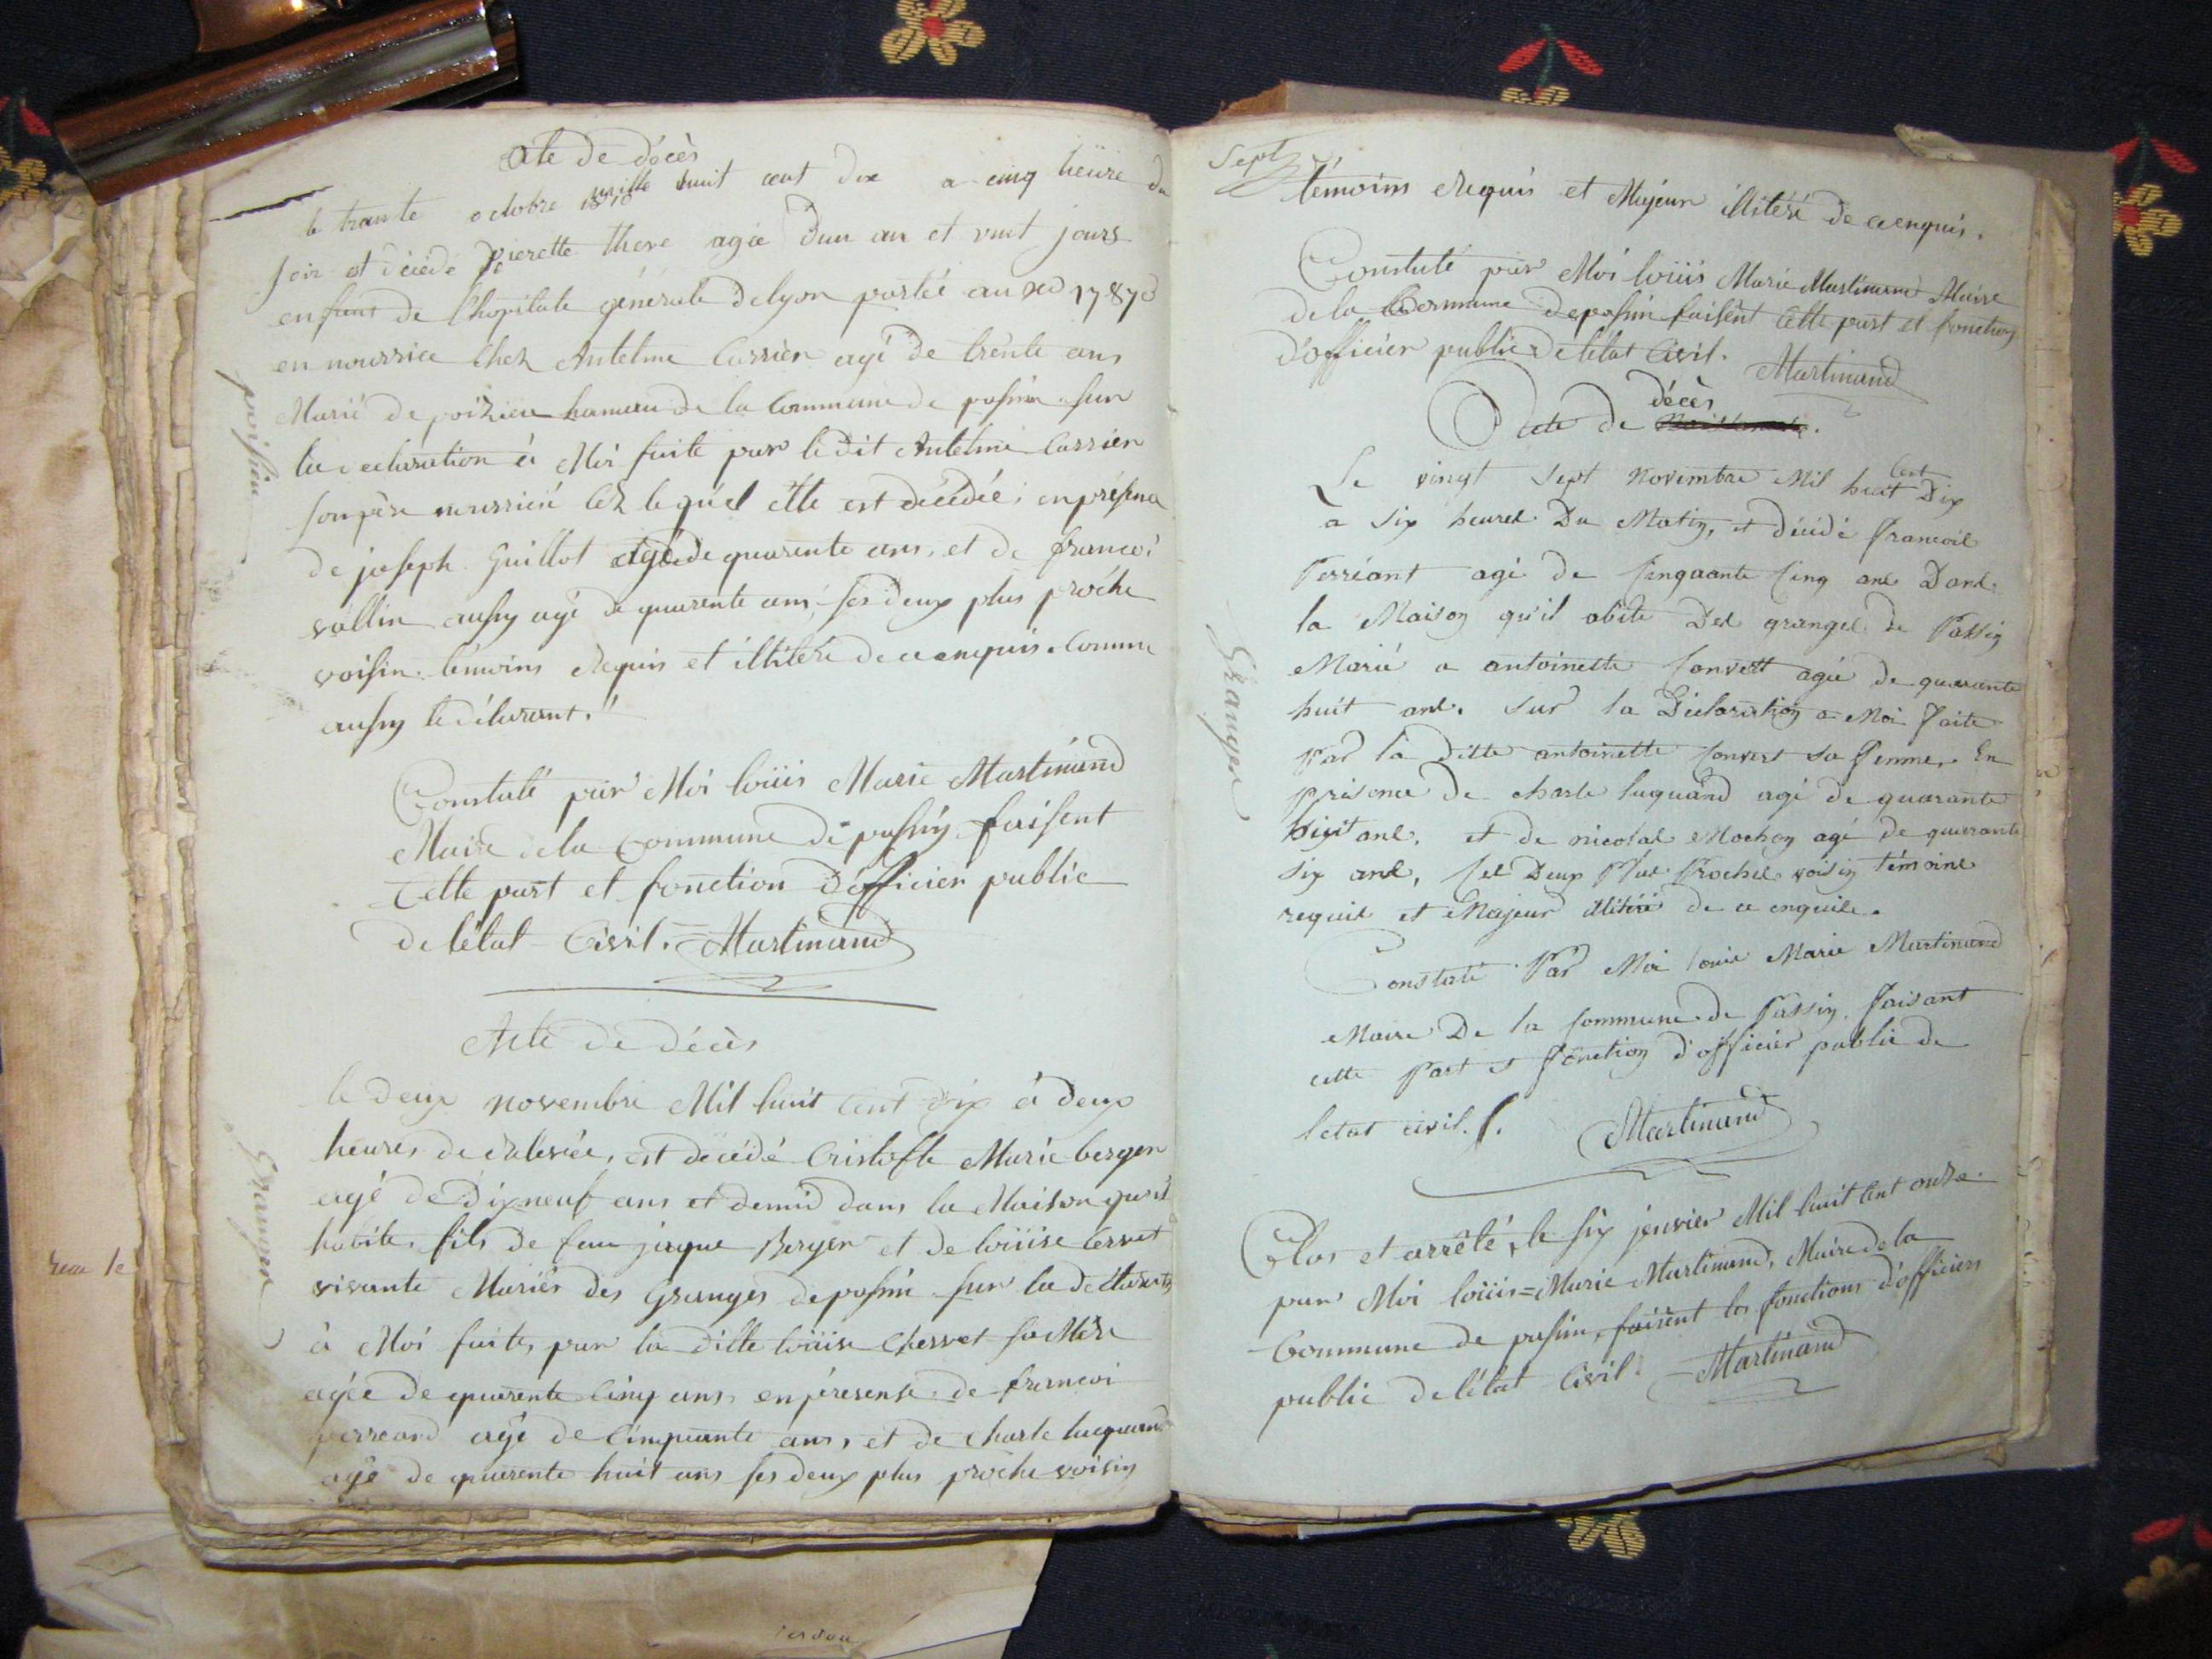 Acte de décès
le trante octobre 1810 mille huit cent dix a cinq heüre du
soir est décédé pierette there agée dun an et vint jours
enfant de l'hopitale générale de lyon portée au no 1787
en nourrice chez Antelme Carrier agé de trente ans
Marié de poizieu hameau de la Commune de passin sur
la déclaration à Moi faite par le dit Antelme Carrier
son père nourricié cez lequ'el elle est décédée, en présence
de joseph Guillot agé de quarente ans, et de francoi
vallin aussy agé de quarente ans, ses deux plus proche
voisin. témoins Requis et illitéré de ce enquis. Comme
aussy le déclarant.
poisieu
Constaté par Moi loüis Marie Martinand
Maire de la Commune de passin faisent
Cette part et fonction d'officier public
de l'état Civil. Martinand
Acte de décès
le deux novembre Mil huit cent dix à deux
heures de relevée, est décédé Cristofle Marie berger
agé de dix neuf ans et demid dans la Maison qu'il
habite, fils de feu jaque Berger et de loüise Cervet
vivante Mariér des Granges de passin sur la déclaration
à Moi faite, par la ditte loüise Chervet sa Mère
agée de quarente Cinq ans, en présense de francoi
perreard agé de Cinquante ans, et de Charle luquand
agé de quarente huit ans ses deux plus proche voisin
Granges
Sept
témoins Requis et Majeur illitéré de ce enquis.
Constaté par Moi loüis Marie Martinand Maire
de la Commune de passin faisent Cette part et fonction
d'officier public de l'état Civil. Martinand
décès
Acte de
Le vingt sept novembre Mil huit Cent Dix
a six heures Du Matin, et décédé francois
Perréant agé de Cinquante Cinq ans Dans
la Maison qu'il abite Des granges de Passin
Marié a antoinette Convert agée de quarante
huit ans. sur la Déclaration a Moi faite
Par la ditte antoinette Convert sa femme. En
présence de charle luquand agé de quarante
huit ans, et de nicolas Mochon agé de quarante
six ans, ses Deux Plus Proches voisin témoins
requis et Majeur illitéré de ce enquis.
Granges
Constaté Par Moi louis Marie Martinand
Maire De la Commune de Passin. faisant
cette Part et fonction d'officier public de
letat civil. Martinand
Clos et arrêté, le six jenvier Mil huit Cent onze.
par Moi loüis=Marie Martinand, Maire de la
Commune de passin, faisent les fonctions d'officier
public de l'état Civil. Martinand